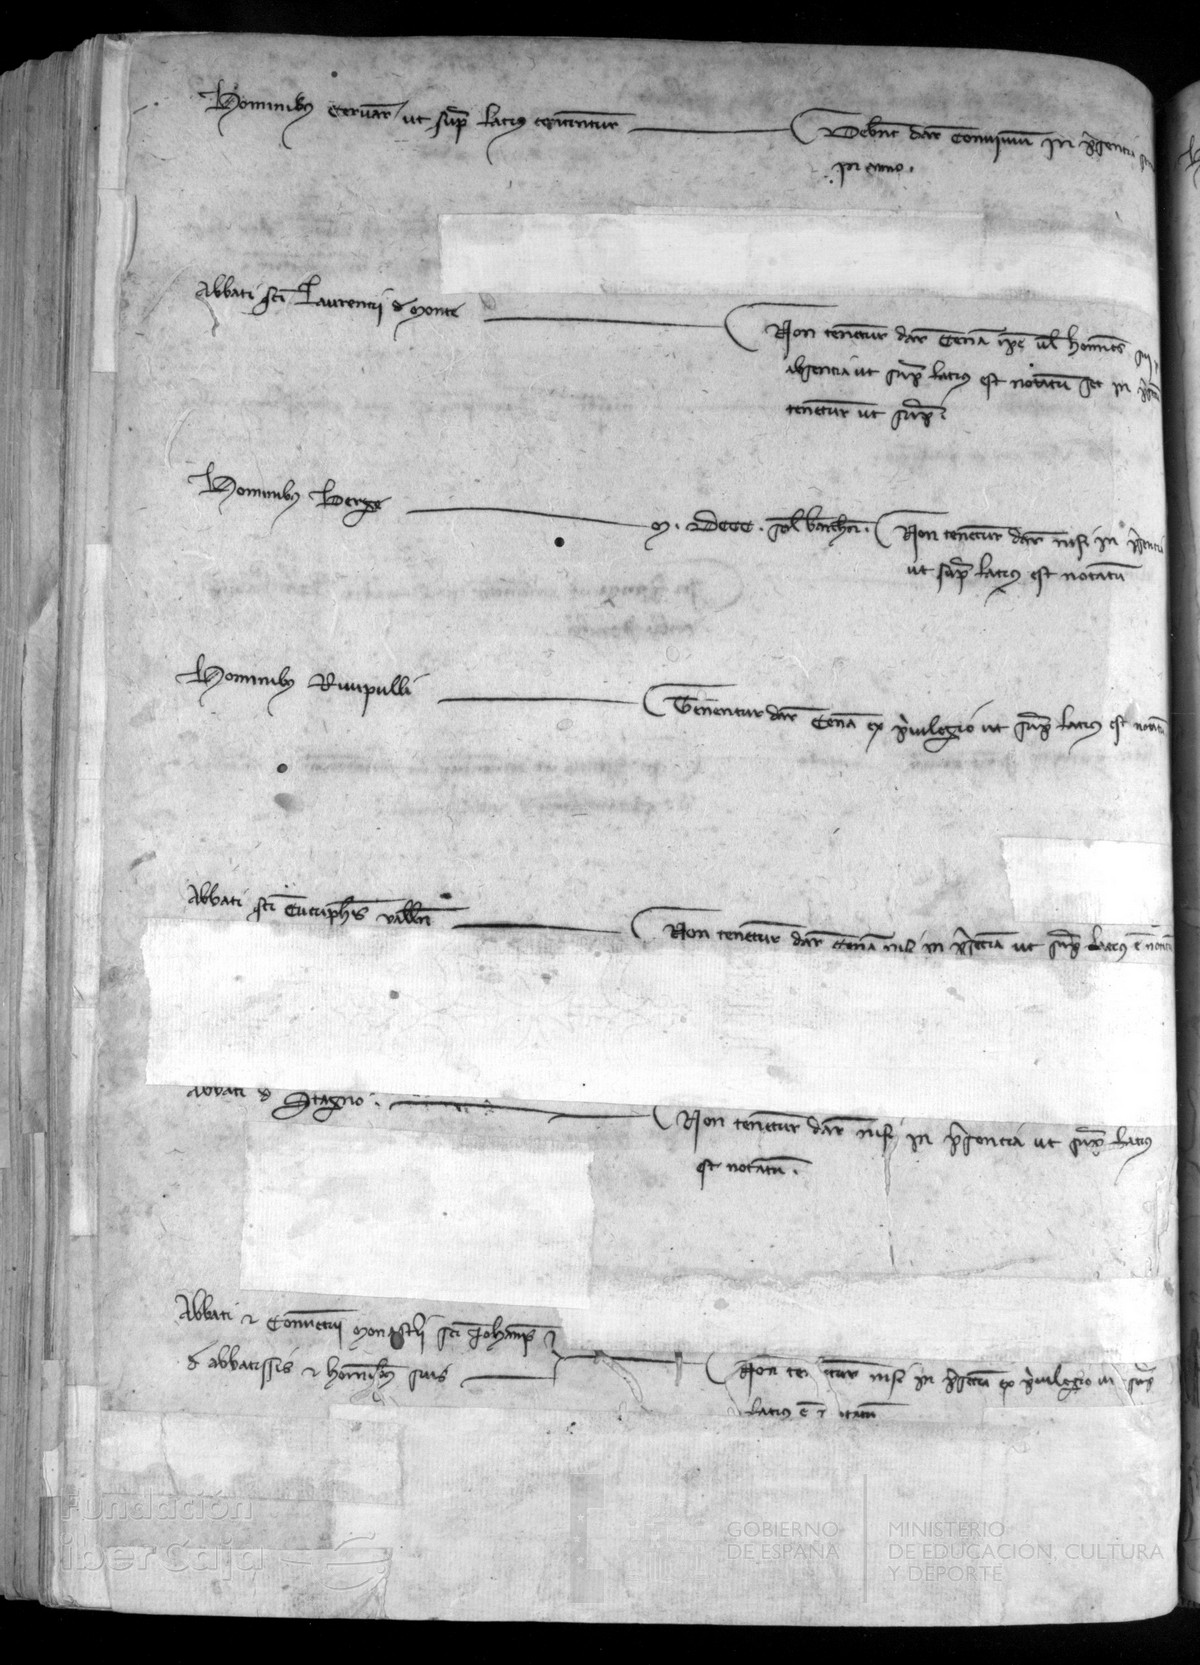 Hominibus Cervar ut sup latius continentur ——— Debnt dar convivium in psentia
in anno.
Abbati sci Laurencii d monte ——— Non tenetur dar cena ipe vl homines sui
absencia ut sup latius est notatu set in
tenetur ut sup
Hominibus Berge ——— M. DCCC. sol barchn. Non tenentur dar nisi in psentia
ut sup latius est notatu
Hominibus Rivipulli ——— Tenentur dar cena ex privilegio ut sup latius est notatu
Abbati sci Cucuphis vallen ——— Non tenetur dar cena nisi in psecia ut sup latius e notatu
Abbati d Stagno. ——— Non tenetur dar nisi in psencia ut sup latius
est notatu.
Abbati et conventui monastrii sci Johanis
d abbatissis et hominibus suis ——— Non ten etur nisi in psecia ex privilegio ut sup
latius e n otatu
Fundación
iberCaja
GOBIERNO
DE ESPAÑA
MINISTERIO
DE EDUCACIÓN, CULTURA
Y DEPORTE